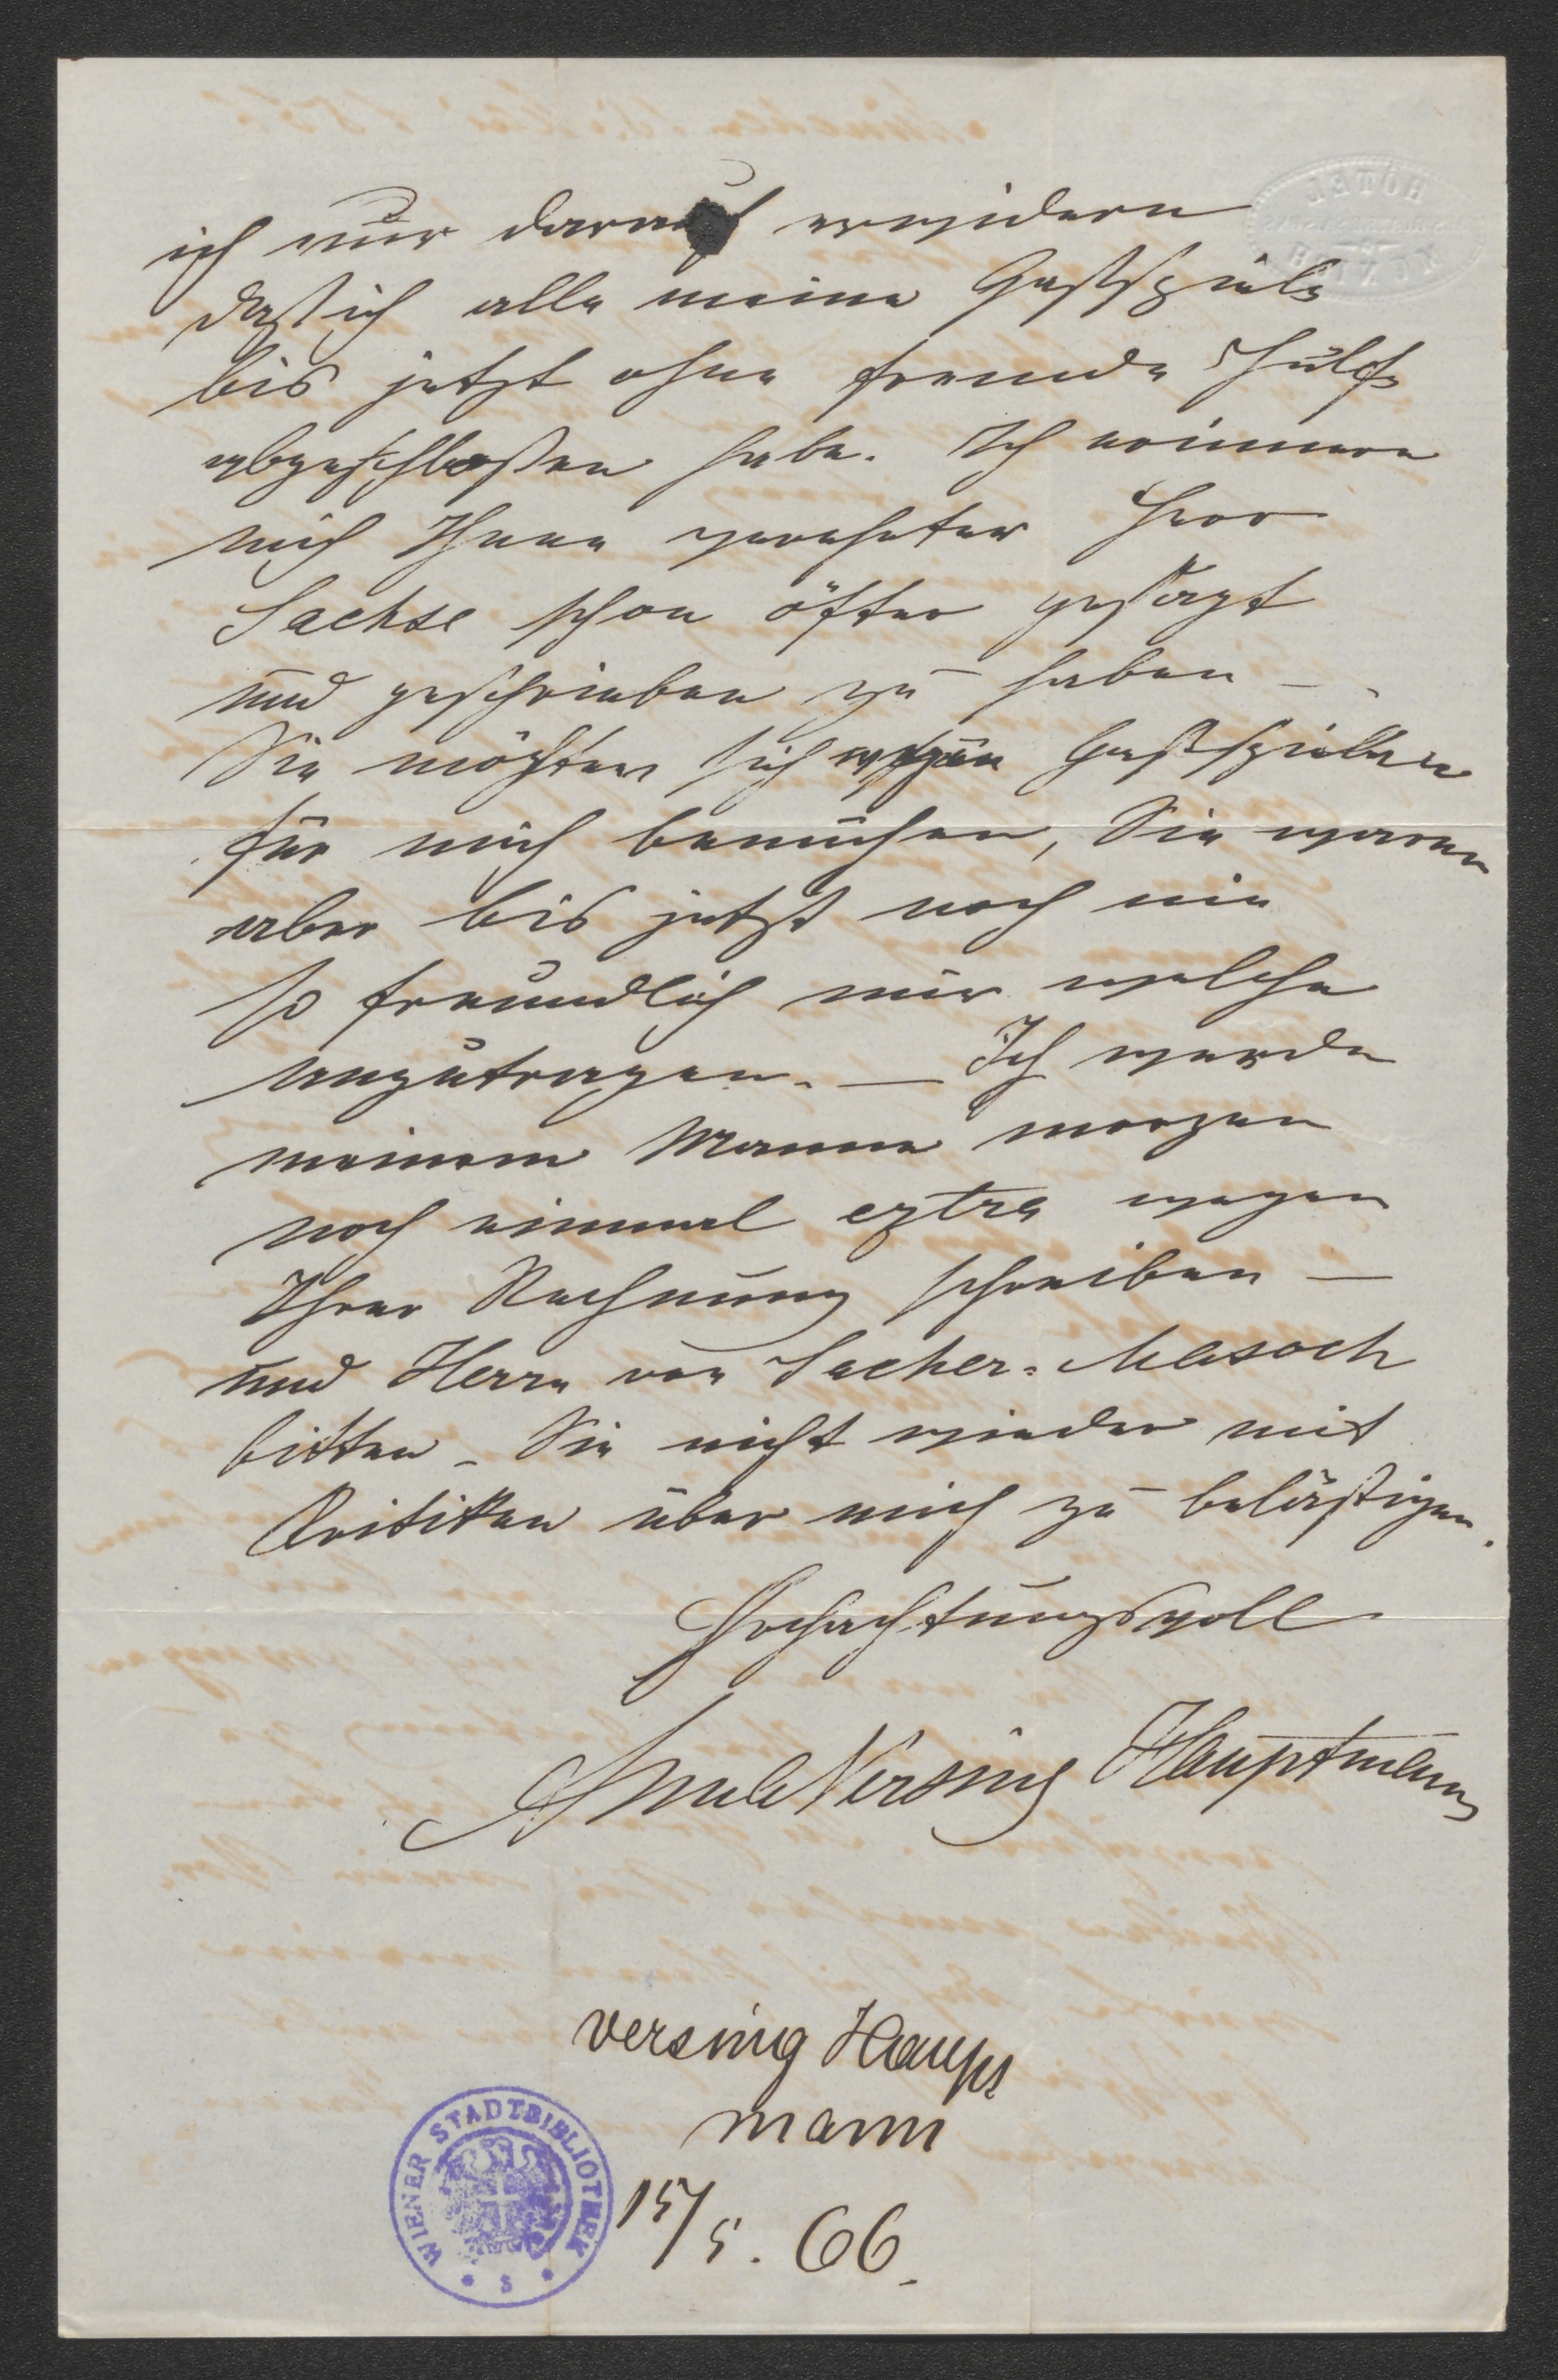 ich nur darauf erwidern
daß ich alle meine Gastspiele
bis jetzt ohne fremde Hülfe
abgeschloßen habe. Ich erinnere
mich Ihnen verehrter Herr
Sachse schon öfter gesagt
und geschrieben zu haben –
Sie möchten sich wegen Gastspielen
für mich bemühen, Sie waren
aber bis jetzt noch nie
so freundlich mir welche
anzutragen. — Ich werde
meinem Manne morgen
noch einmal extra wegen
Ihrer Rechnung schreiben —
und Herrn von Sacher=Masoch
bitten – Sie nicht wieder mit
Kritiken über mich zu belästigen.
Hochachtungsvoll
Versing Hauptmann
Versing Haupt
mann
15/5. 66.
WIENER STADTBIBLIOTHEK
HÔTEL